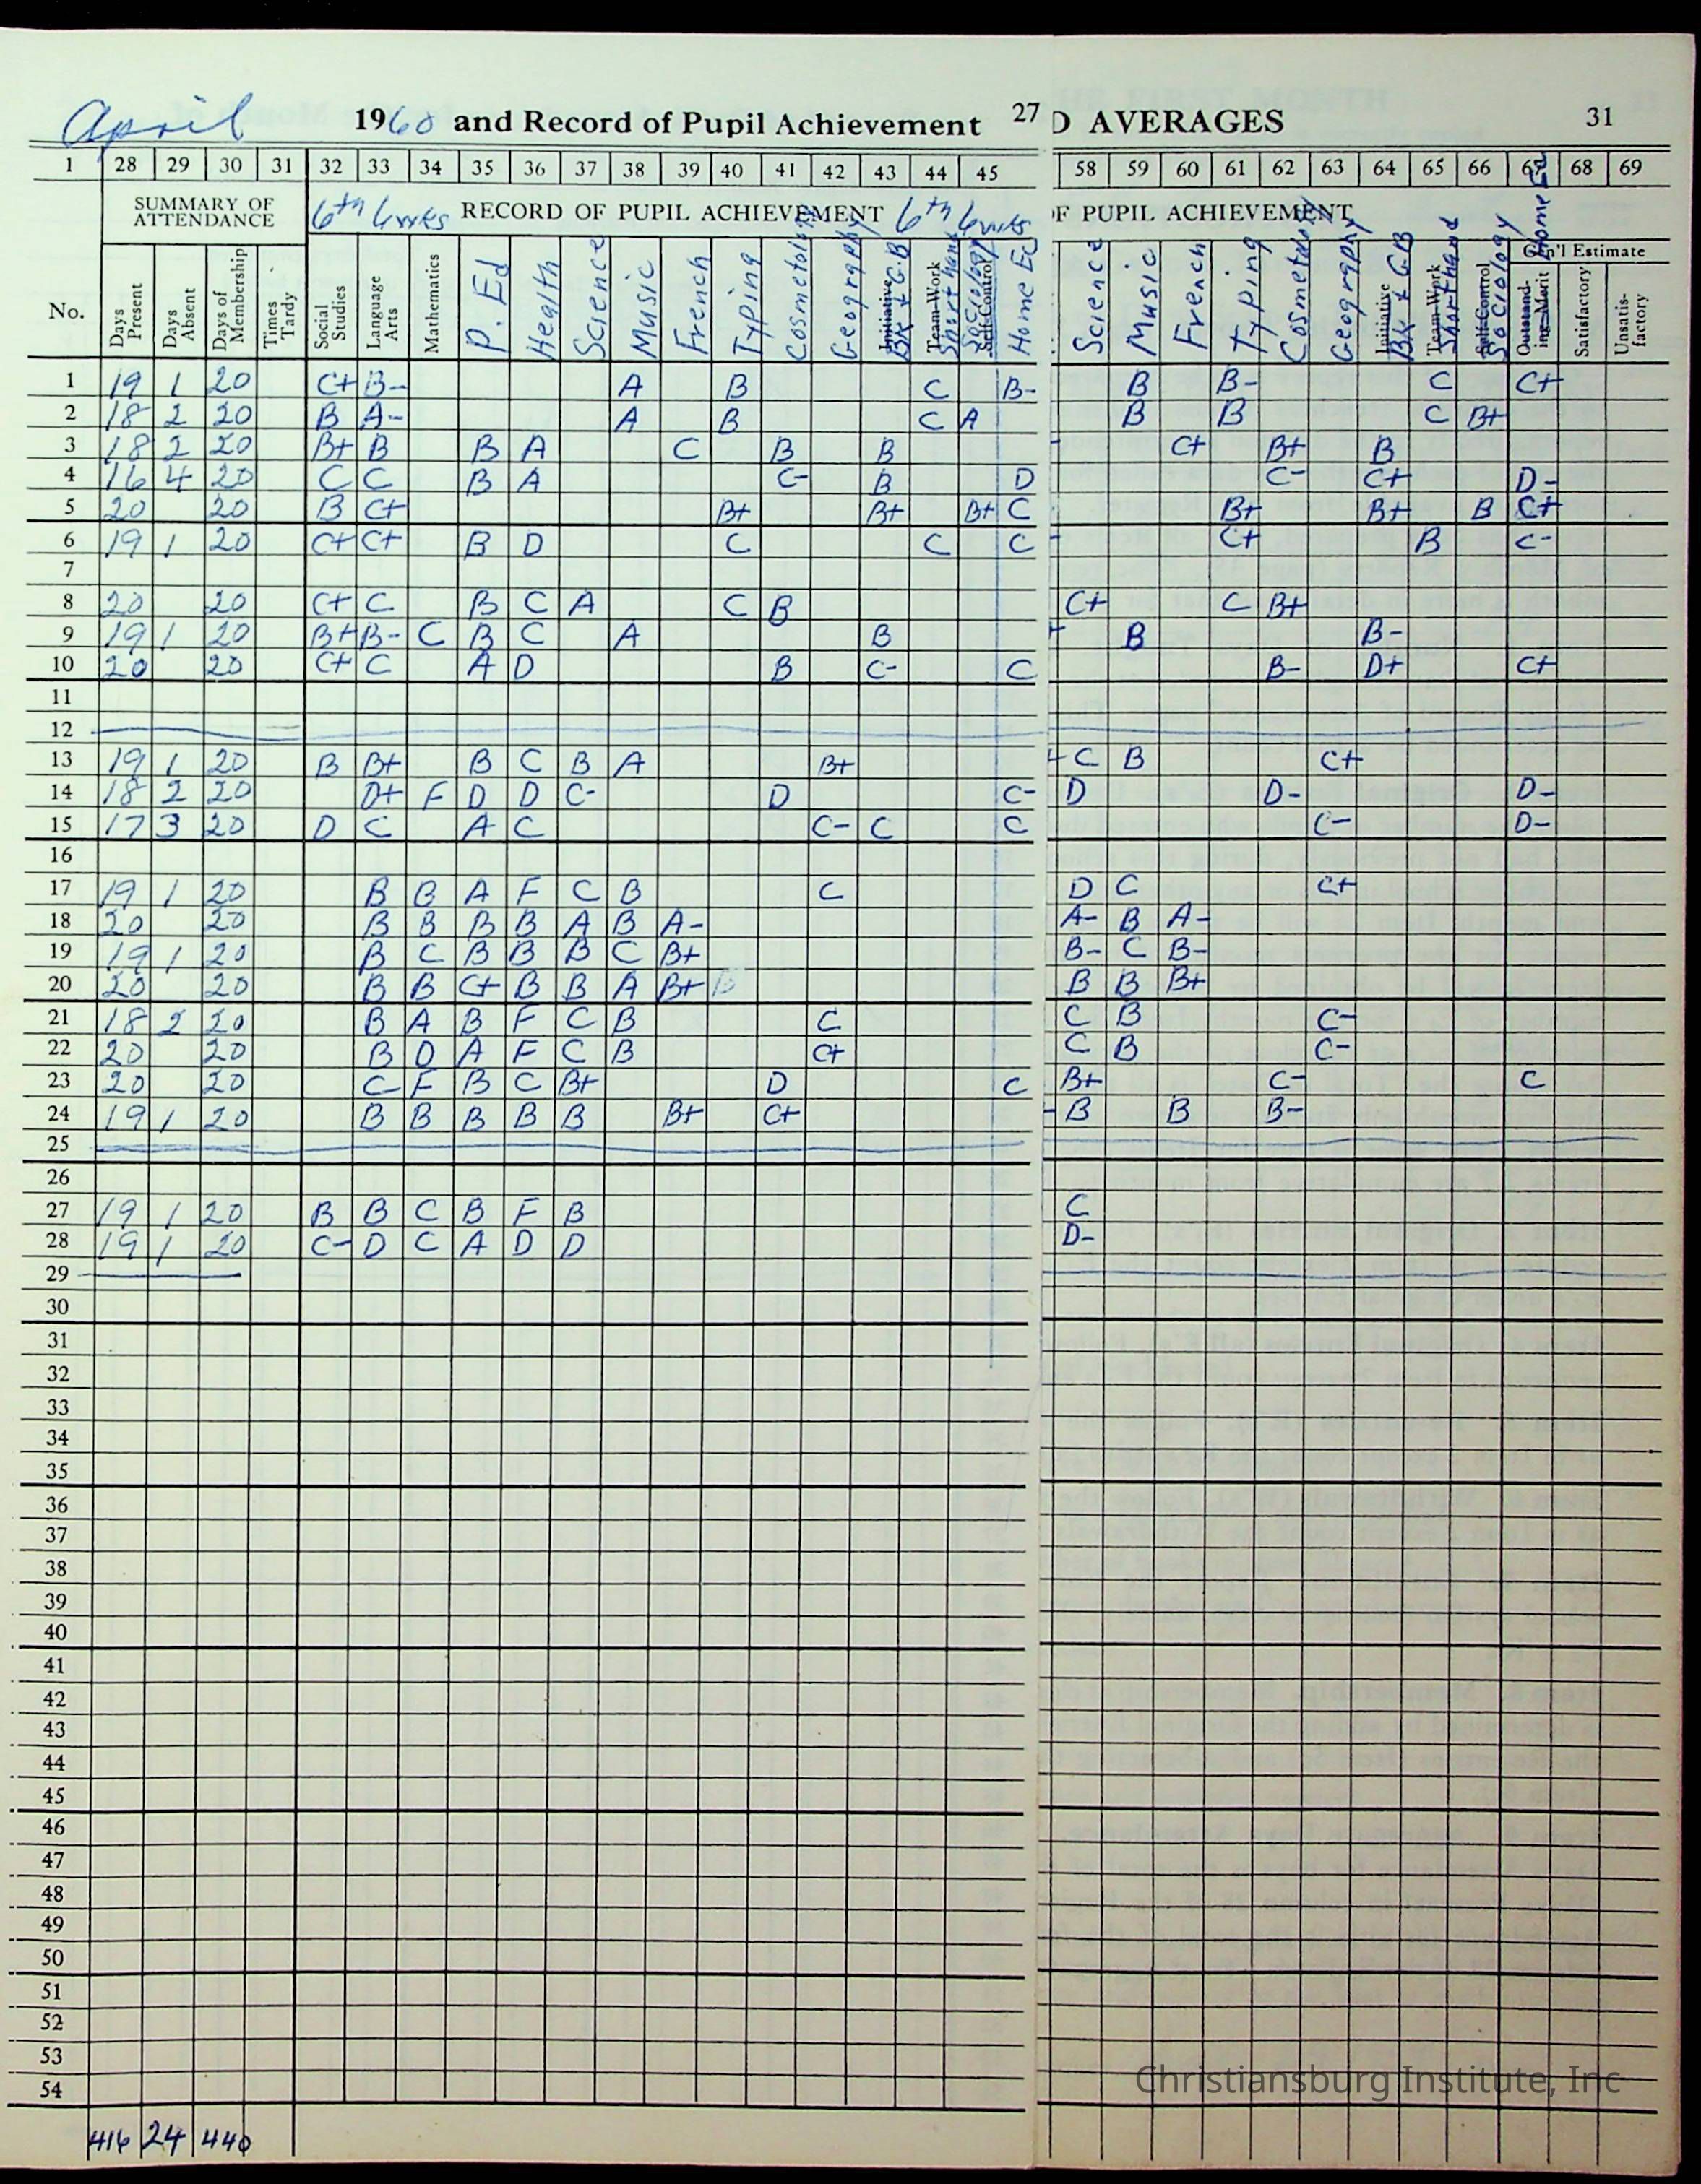 April 1960 and Record of Pupil Achievement 27 D AVERAGES 31
1 28 29 30 31 32 33 34 35 36 37 38 39 40 41 42 43 44 45 58 59 60 61 62 63 64 65 66 67 68 69
SUMMARY OF ATTENDANCE 6th 6wks RECORD OF PUPIL ACHIEVEMENT 6th 6wks OF PUPIL ACHIEVEMENT
Gen'l Estimate
No. Days Present Days Absent Days of Membership Times Tardy Social Studies Language Arts Mathematics P. Ed Health Science Music French Typing Cosmetology Geography Initiative BK & G.B Team-Work Shorthand Self-Control Sociology Home Ec Science Music French Typing Cosmetology Geography Initiative BK & G.B Team-Work Shorthand Self-Control Sociology Outstanding Merit Home Ec Satisfactory Unsatisfactory
1 19 1 20 C+ B- A B C B- B B- C C+
2 18 2 20 B A- A B C A B B C B+
3 18 2 20 B+ B B A C B B C+ B+ B
4 16 4 20 C C B A C- B D C- C+ D-
5 20 20 B C+ B+ B+ B+ C B+ B+ B C+
6 19 1 20 C+ C+ B D C C C C+ B C-
7
8 20 20 C+ C B C A C B C+ C B+
9 19 1 20 B+ B- C B C A B B B-
10 20 20 C+ C A D B C- C B- D+ C+
11
12
13 19 1 20 B B+ B C B A B+ C B C+
14 18 2 20 D+ F D D C- D C- D D- D-
15 17 3 20 D C A C C- C C C- D-
16
17 19 1 20 B B A F C B C D C C+
18 20 20 B B B B A B A- A- B A-
19 19 1 20 B C B B B C B+ B- C B-
20 20 20 B B C+ B B A B+ B B B B+
21 18 2 20 B A B F C B C C B C-
22 20 20 B D A F C B C+ C B C-
23 20 20 C- F B C B+ D C B+ C- C
24 19 1 20 B B B B B B+ C+ B B B-
25
26
27 19 1 20 B B C B F B C
28 19 1 20 C- D C A D D D-
29
30
31
32
33
34
35
36
37
38
39
40
41
42
43
44
45
46
47
48
49
50
51
52
53
54
416 24 440
Christiansburg Institute, Inc